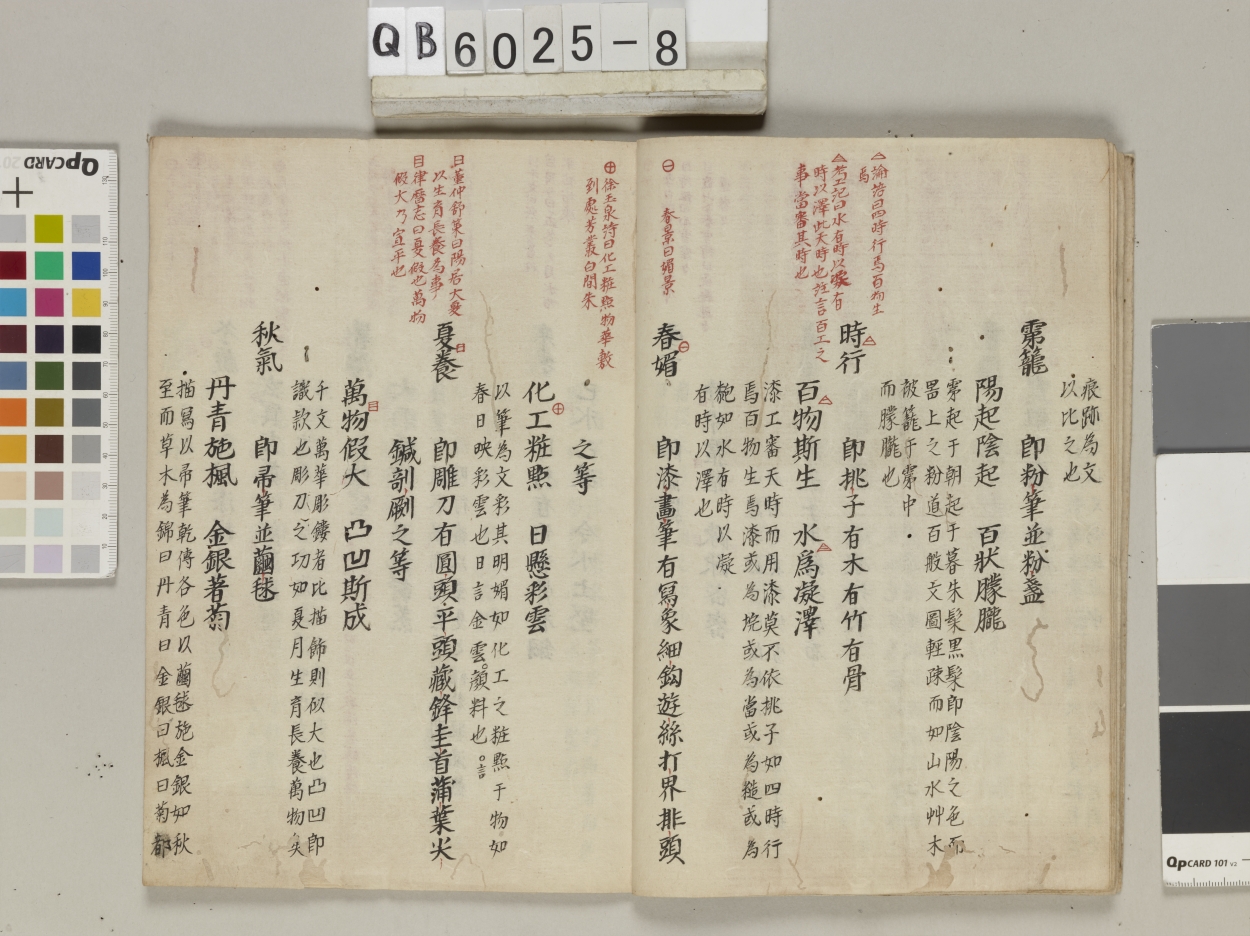 QB6025-8
痕跡為文
以比之也
霱籠 即粉筆並粉盞
陽起陰起 百狀朦朧
霱起于朝起于暮朱髹黒髹即陰陽之色而
罟上之粉道百般文圖輕疎而如山水艸木
被籠于霱中
而朦朧也
時行 即挑子有木有竹有骨
百物斯生 水爲凝澤
漆工審天時而用漆莫不依挑子如四時行
焉百物生焉漆或為垸或為當或為糙或為
麭如水有時以凝
有時以澤也
春媚 即漆畫筆有寫象細鈎遊絲打界排頭
之等
化工粧㸃 日懸彩雲
以筆為文彩其明媚如化工之粧㸃于物如
春日映彩雲也日言金雲顔料也
夏養 即雕刀有圓頭平頭藏鋒圭首蒲葉尖
鍼剞劂之等
萬物假大 凸凹斯成
千文萬華彫鏤者比描飾則似大也凸凹即
識款也彫刀之功如夏月生育長養萬物矣
秋氣 即帚筆並繭毬
丹青施楓 金銀著菊
描寫以帚筆乾傅各色以繭毬施金銀如秋
至而草木為錦曰丹青曰金銀曰楓曰菊都
論語曰四時行焉百物生
焉
考工記曰水有時以凝有
時以澤此天時也註言百工之
事當審其時也
春景曰媚景
徐玉泉詩曰化工粧㸃物華敷
到處芳叢白間朱
董仲舒策曰陽居大夏
以生育長養為事
律暦志曰夏假也萬物
假大乃宣平也
QpCARD 20
QpCARD 101 v2